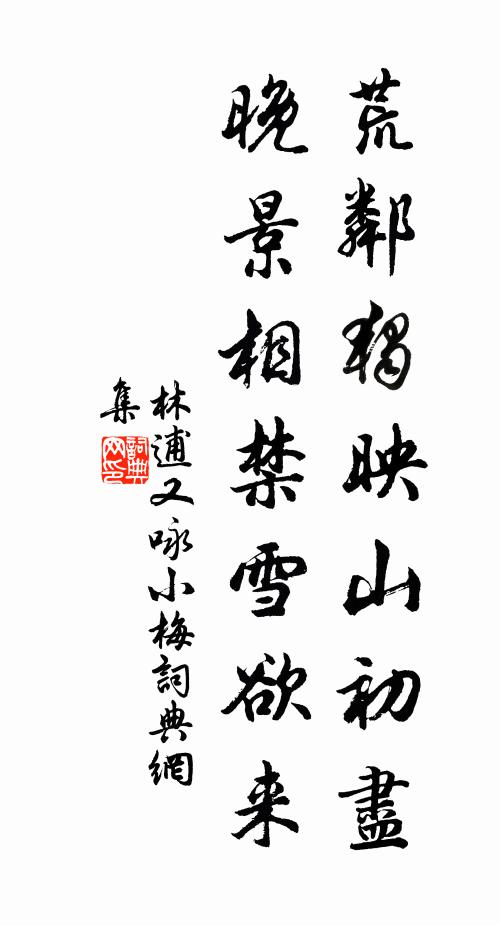 荒鄰獨映山初盡
晚景相禁雪欲来
林逋又咏小梅詞典網
集
詞典
网印